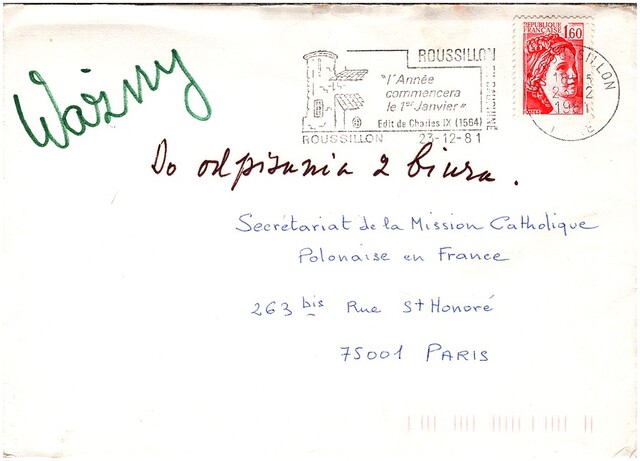 Ważny
ROUSSILLON
"l'Année
commencera
le 1er Janvier"
Edit de Charles IX (1564)
ROUSSILLON 23-12-81
REPUBLIQUE
FRANÇAISE 1,60
Do odpisania z biura.
Secrétariat de la Mission Catholique
Polonaise en France
263 bis Rue St Honoré
75001 PARIS